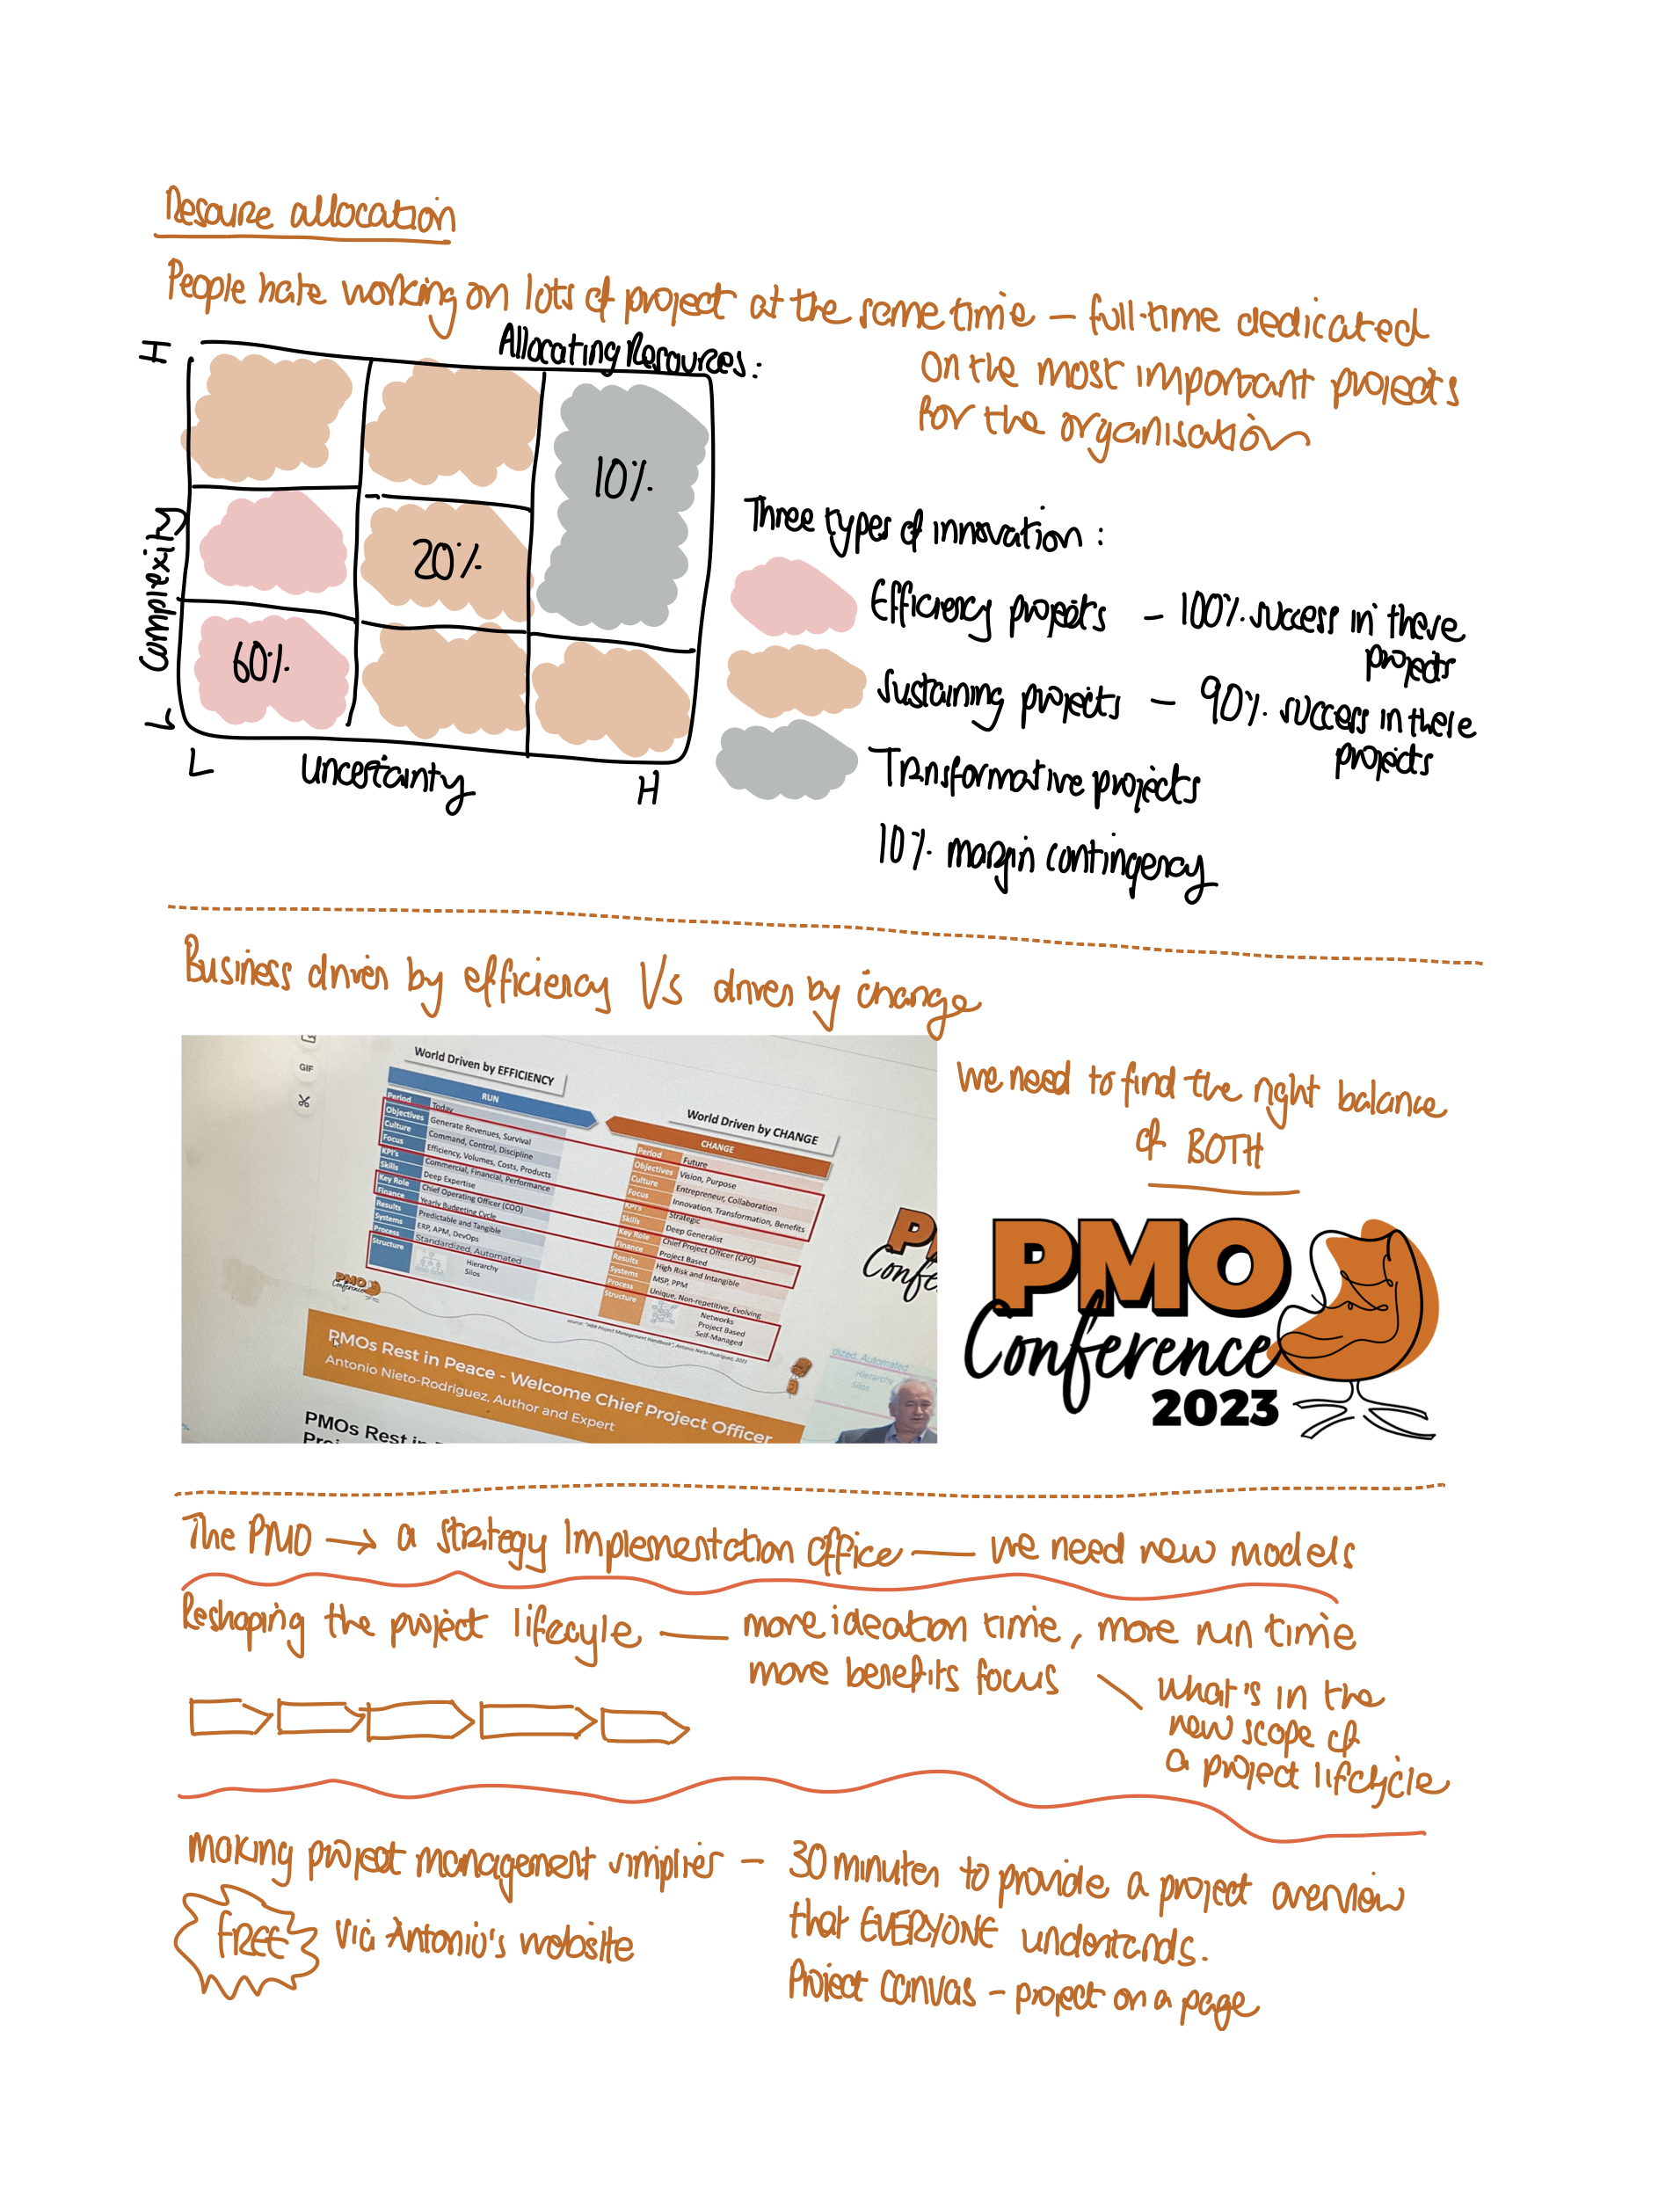 Resource allocation
People hate working on lots of project at the same time — full-time dedicated
on the most important projects
for the organisation
Allocating Resources:
H
Complexity
L
10%
20%
60%
L
Uncertainty
H
Three types of innovation:
Efficiency projects — 100% success in these
projects
Sustaining projects — 90% success in these
projects
Transformative projects
10% margin contingency
Business driven by efficiency Vs driven by change
we need to find the right balance
of BOTH
GIF
World Driven by EFFICIENCY
RUN
Period Today
Objectives Generate Revenues, Survival
Culture Command, Control, Discipline
Focus Efficiency, Volumes, Costs, Products
KPI's Commercial, Financial, Performance
Skills Deep Expertise
Key Role Chief Operating Officer (COO)
Finance Yearly Budgeting Cycle
Results Predictable and Tangible
Systems ERP, APM, DevOps
Process Standardized, Automated
Structure
Hierarchy
Silos
World Driven by CHANGE
CHANGE
Period Future
Objectives Vision, Purpose
Culture Entrepreneur, Collaboration
Focus Innovation, Transformation, Benefits
KPI's Strategic
Skills Deep Generalist
Key Role Chief Project Officer (CPO)
Finance Project Based
Results High Risk and Intangible
Systems MSP, PPM
Process Unique, Non-repetitive, Evolving
Structure
Networks
Project Based
Self-Managed
source: "HBR Project Management Handbook", Antonio Nieto-Rodriguez, 2021
PMO
Conference
PMOs Rest in Peace - Welcome Chief Project Officer
Antonio Nieto-Rodriguez, Author and Expert
PMOs Rest in
dized, Automated
Hierarchy
Silos
PMO
Conference
2023
The PMO → a strategy Implementation office — we need new models
Reshaping the project lifecycle — more ideation time, more run time
more benefits focus
what's in the
new scope of
a project lifecycle
making project management simplier — 30 minutes to provide a project overview
that EVERYONE understands.
Project canvas — project on a page
FREE via Antonio's website